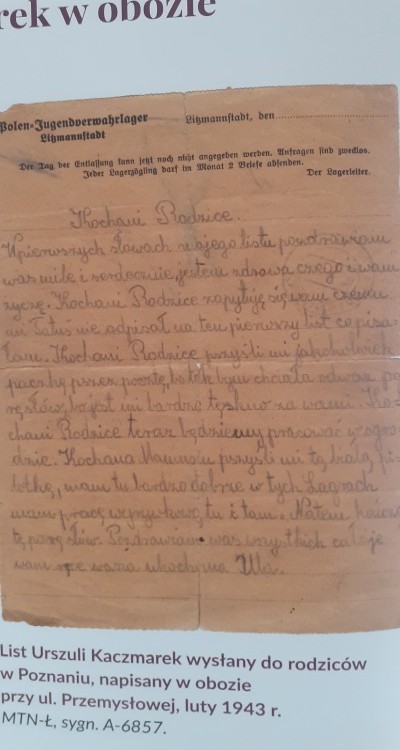 rek w obozie
Polen-Jugendverwahrlager
Litzmannstadt
Litzmannstadt, den
Der Tag der Entlassung kann jetzt noch nicht angegeben werden. Anfragen sind zwecklos.
Jeder Lagerzögling darf im Monat 2 Briefe absenden.
Der Lagerleiter.
Kochani Rodzice.
W pierwszych słowach mojego listu pozdrawiam
was mile i serdecznie, jestem zdrowa czego i wam
życzę. Kochani Rodzice zapytuję się wam czemu
mi Tatuś nie odpisał na ten pierwszy list co pisa
łam. Kochani Rodzice przyśli mi jakąkolwiek
paczkę przez pocztę, bo tek bym chciała
bo jest mi bardzo tęskno za wami. Ko
chani Rodzice teraz będziemy pracować w ogro
dzie. Kochana Mamusiu przyśli mi tą białą
mam tu bardzo dobrze w tych Łagrach
mam pracę tu i tam. Natem kończ
tę parę słów. Pozdrawiam was wszystkich całuje
wam wasza ukochana Ula.
List Urszuli Kaczmarek wysłany do rodziców
w Poznaniu, napisany w obozie
przy ul. Przemysłowej, luty 1943 r.
MTN-Ł, sygn. A-6857.